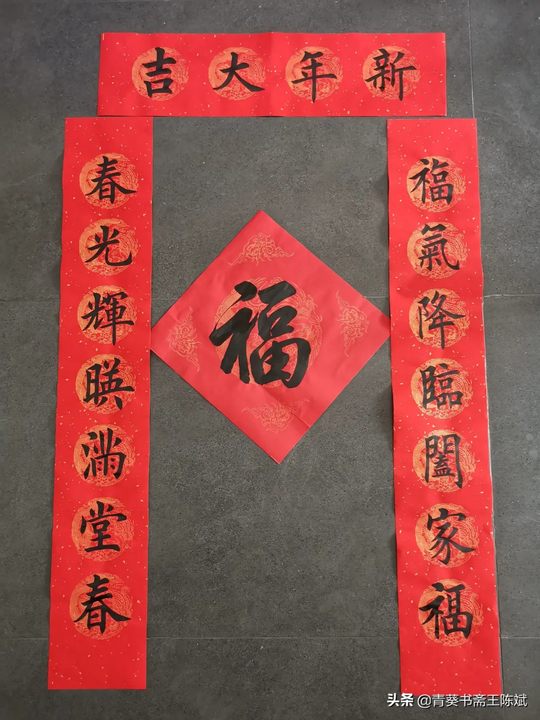 新年大吉
福氣降臨闔家福
春光輝暎滿堂春
福
头条 @青葵书斋王陈斌